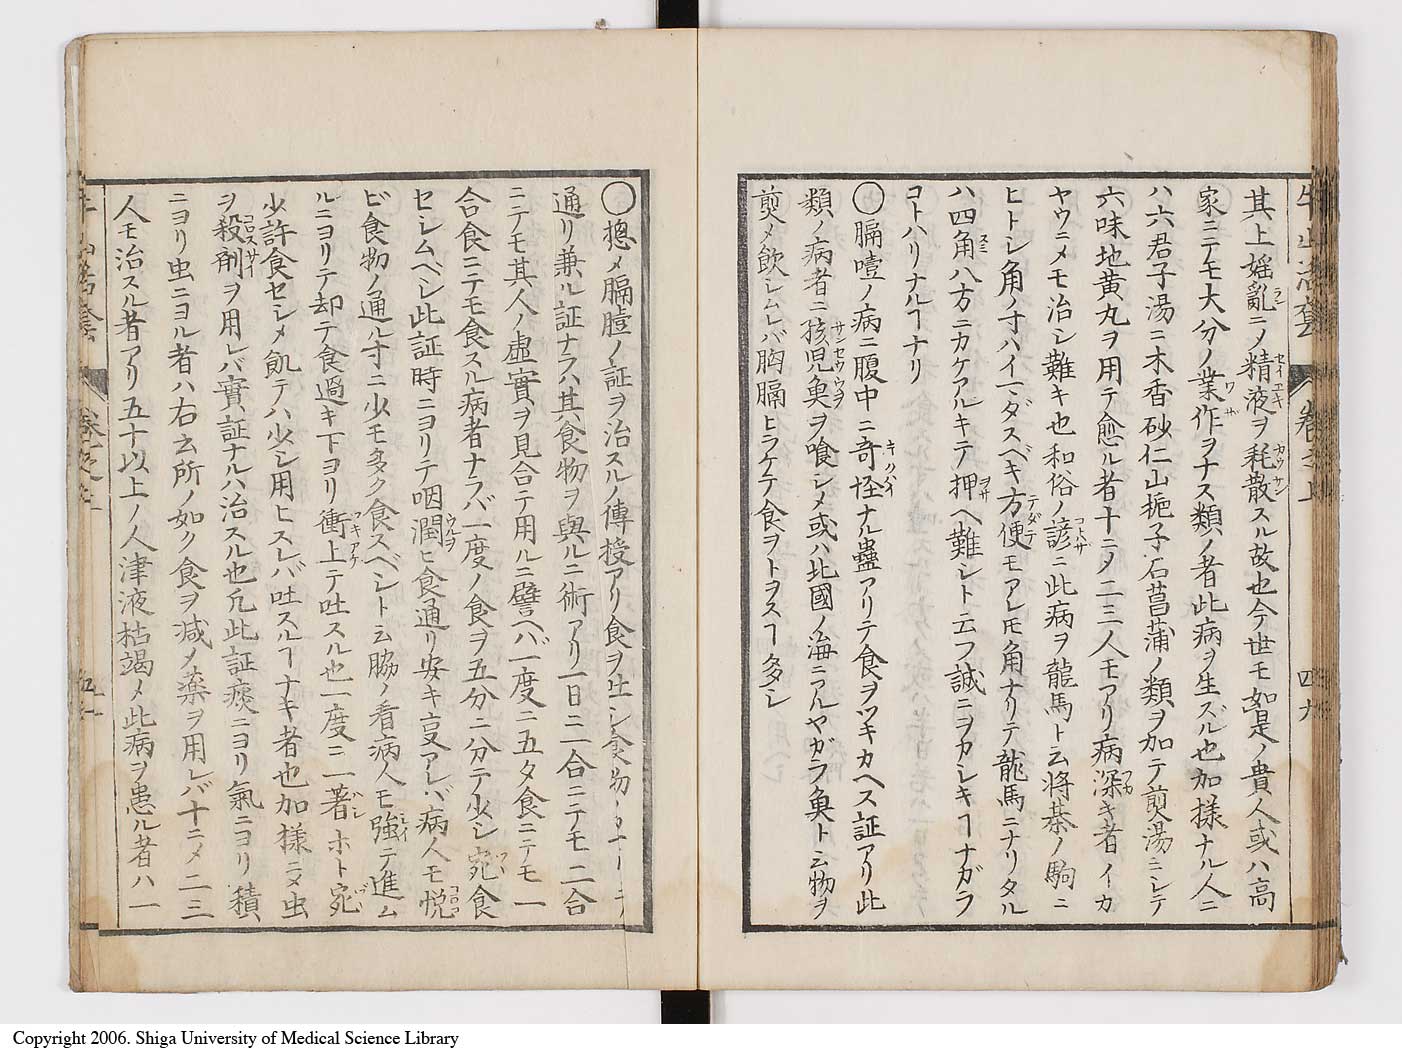 牛山活套 卷之上 四九
其上婬亂ニメ精液ヲ耗散スル故也今世モ如是ノ貴人或ハ高
家ニテモ大分ノ業作ヲナス類ノ者此病ヲ生ズル也加樣ナル人ニ
ハ六君子湯ニ木香砂仁山梔子石菖蒲ノ類ヲ加テ煎湯ニレテ
六味地黄丸ヲ用テ愈ル者十ニメ二三人モアリ病深キ者イカ
ヤウニメモ治シ難キ也和俗ノ諺ニ此病ヲ龍馬ト云将棊ノ駒ニ
ヒトレ角ノ寸ハイマダスベキ方便モアレ𪜈角ナリテ龍馬ニナリタル
ハ四角八方ニカケアルキテ押ヘ難シト云フ誠ニヲカシキヿナガラ
コトハリナルヿナリ
〇膈噎ノ病ニ腹中ニ奇怪ナル蟲アリテ食ヲツキカヘス証アリ此
類ノ病者ニ孩児𩵋ヲ喰シメ或ハ北國ノ海ニアルヤガラ𩵋ト云物ヲ
煎メ飲シムレバ胸膈ヒラケテ食ヲトヲスヿ多シ
〇摠メ膈噎ノ証ヲ治スルノ傳授アリ食ヲ吐シ食物
通リ兼ル証ナラハ其食物ヲ與ルニ術アリ一日二合ニテモ二合
ニテモ其人ノ虚實ヲ見合テ用ルニ譬ヘバ一度ニ五タ食ニテモ一
合食ニテモ食スル病者ナラバ一度ノ食ヲ五分ニ分テ少シ宛食
セシムベシ此証時ニヨリテ咽潤ヒ食通リ安キ叓アレバ病人モ悦
ビ食物ノ通ル寸ニ少モ多ク食スベシト云脇ノ看病人モ強テ進ム
ルニヨリテ却テ食過キ下ヨリ衝上テ吐スル也一度ニ一著ホト宛
少許食セシメ飢テハ少シ用ヒスレバ吐スルヿナキ者也加樣ニメ虫
ヲ殺剤ヲ用レバ實証ナルハ治スル也凡此証痰ニヨリ氣ニヨリ積
ニヨリ虫ニヨル者ハ右云所ノ如ク食ヲ减メ藥ヲ用レバ十ニメ二三
人モ治スル者アリ五十以上ノ人津液枯竭メ此病ヲ患ル者ハ一
Copyright 2006. Shiga University of Medical Science Library